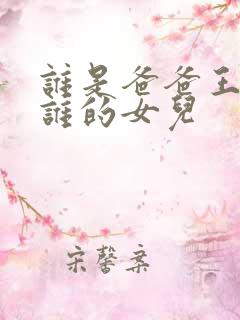 誰是爸爸王
誰的女兒
宋馨案